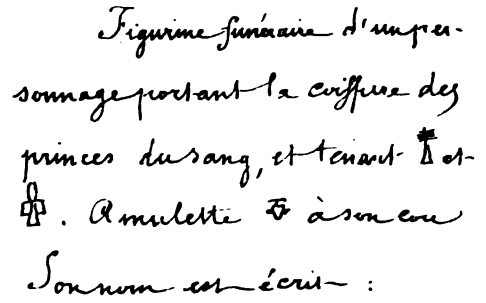 Figurine funéraire d'un per-
sonnage portant la coiffure des
princes du sang, et tenant 𓊽 et
𓎬. Amulette 𓄣 à son cou
Son nom est écrit :